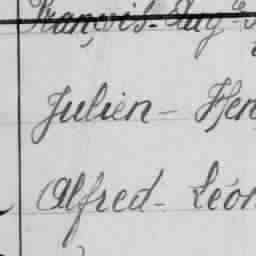 François-Aug
Julien-Hen
Alfred-Léon